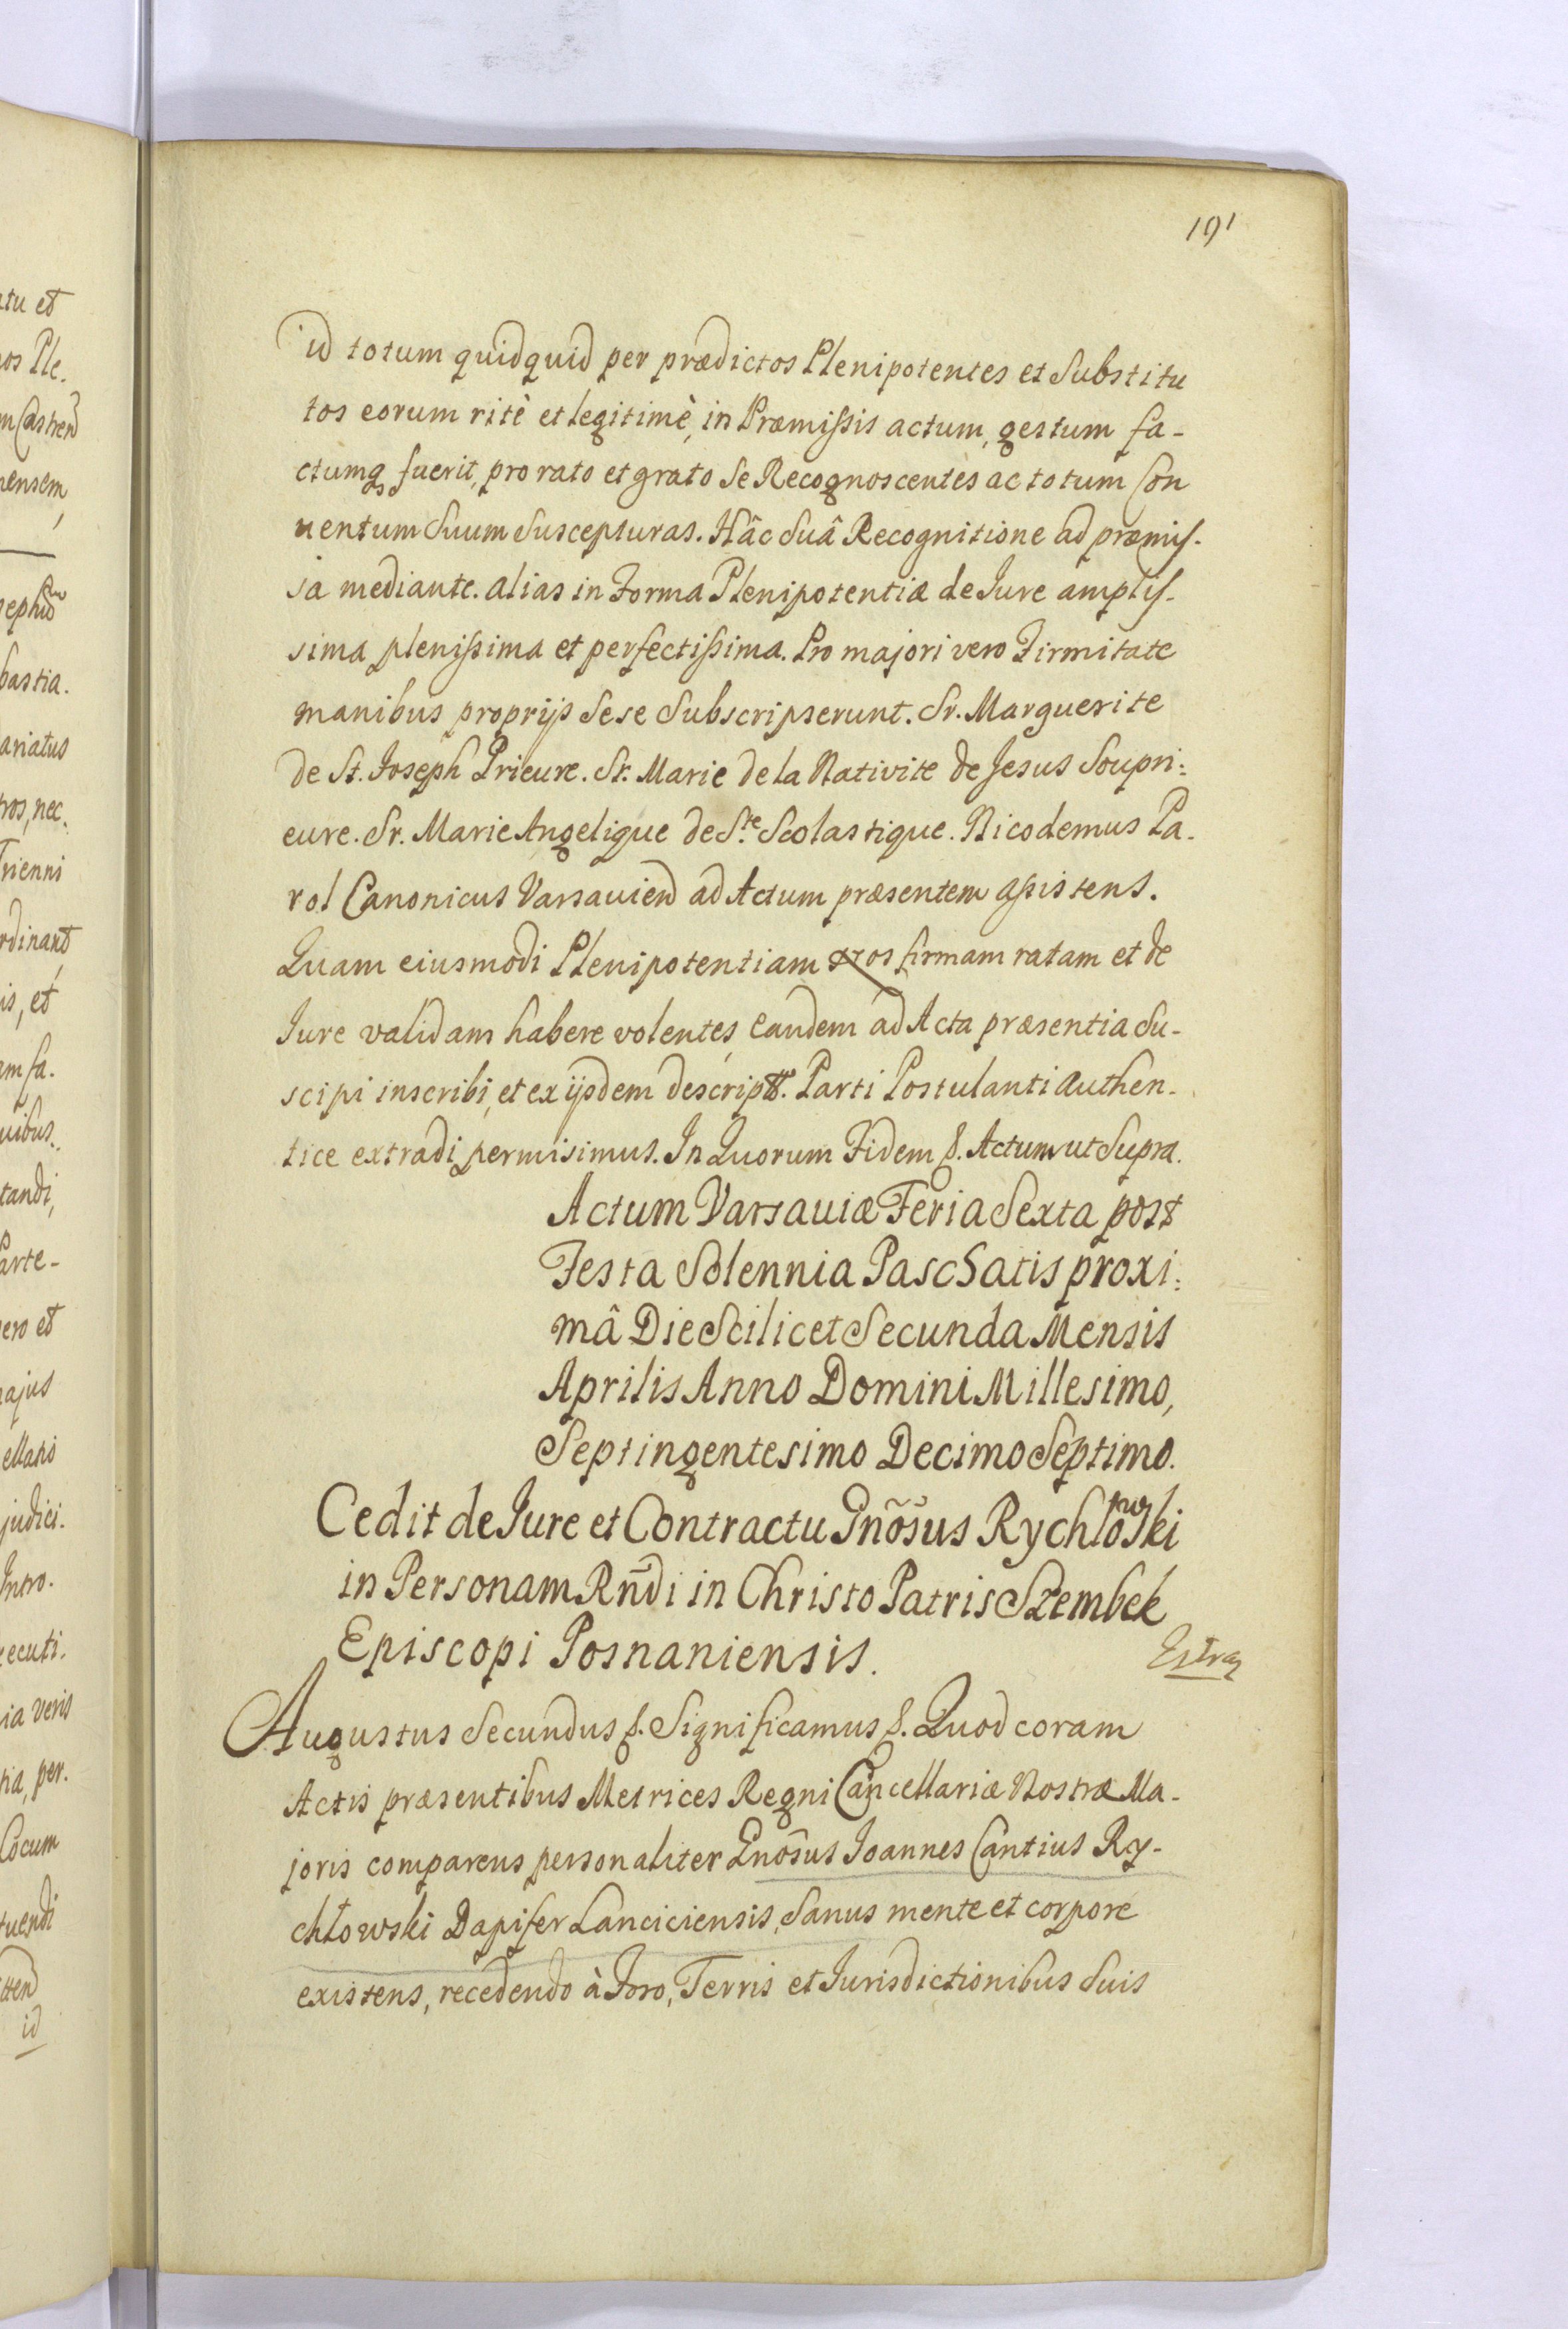 191
id totum quidquid per prædictos Plenipotentes et Substitu
tos eorum ritè et legitimè, in Præmissis actum, gestum fa-
ctumq₃ fuerit, pro rato et grato se Recognoscentes ac totum Con
uentum Suum Suscepturas. Hâc Suâ Recognitione ad præmis-
sa mediante. alias in Forma Plenipotentiæ de Jure amplis-
sima plenissima et perfectissima. Pro majori vero Firmitate
manibus proprijs Sese Subscripserunt. Sr. Marguerite
de St. Joseph Prieure. Sr. Marie de la Nativite de Jesus Soupri:
eure. Sr. Marie Angelique de Ste. Scolastique. Nicodemus Pa-
rol Canonicus Varsauien ad Actum præsentem assistens.
Quam eiusmodi Plenipotentiam firmam ratam et de
Jure validam habere volentes, eandem ad Acta præsentia Su-
scipi inscribi, et ex ijsdem descript. Parti Postulanti authen-
tice extradi permisimus. In Quorum Fidem &. Actum ut Supra.
Actum Varsauiæ Feria Sexta post
Festa Solennia Paschatis proxi:
mâ Die Scilicet Secunda Mensis
Aprilis Anno Domini Millesimo,
Septingentesimo Decimo Septimo.
Cedit de Jure et Contractu Gnõsus Rychłowski
in Personam Rñdi in Christo Patris Szembek
Episcopi Posnaniensis.
Augustus Secundus &. Significamus &. Quod coram
Actis præsentibus Metrices Regni Cancellariæ Nostræ Ma-
joris comparens personaliter Gnõsus Joannes Cantius Ry-
chłowski Dapifer Lanciciensis, Sanus mente et corpore
existens, recedendo à Foro, Terris et Jurisdictionibus Suis
tu et
os Ple.